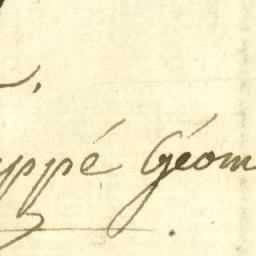 yppé Géom